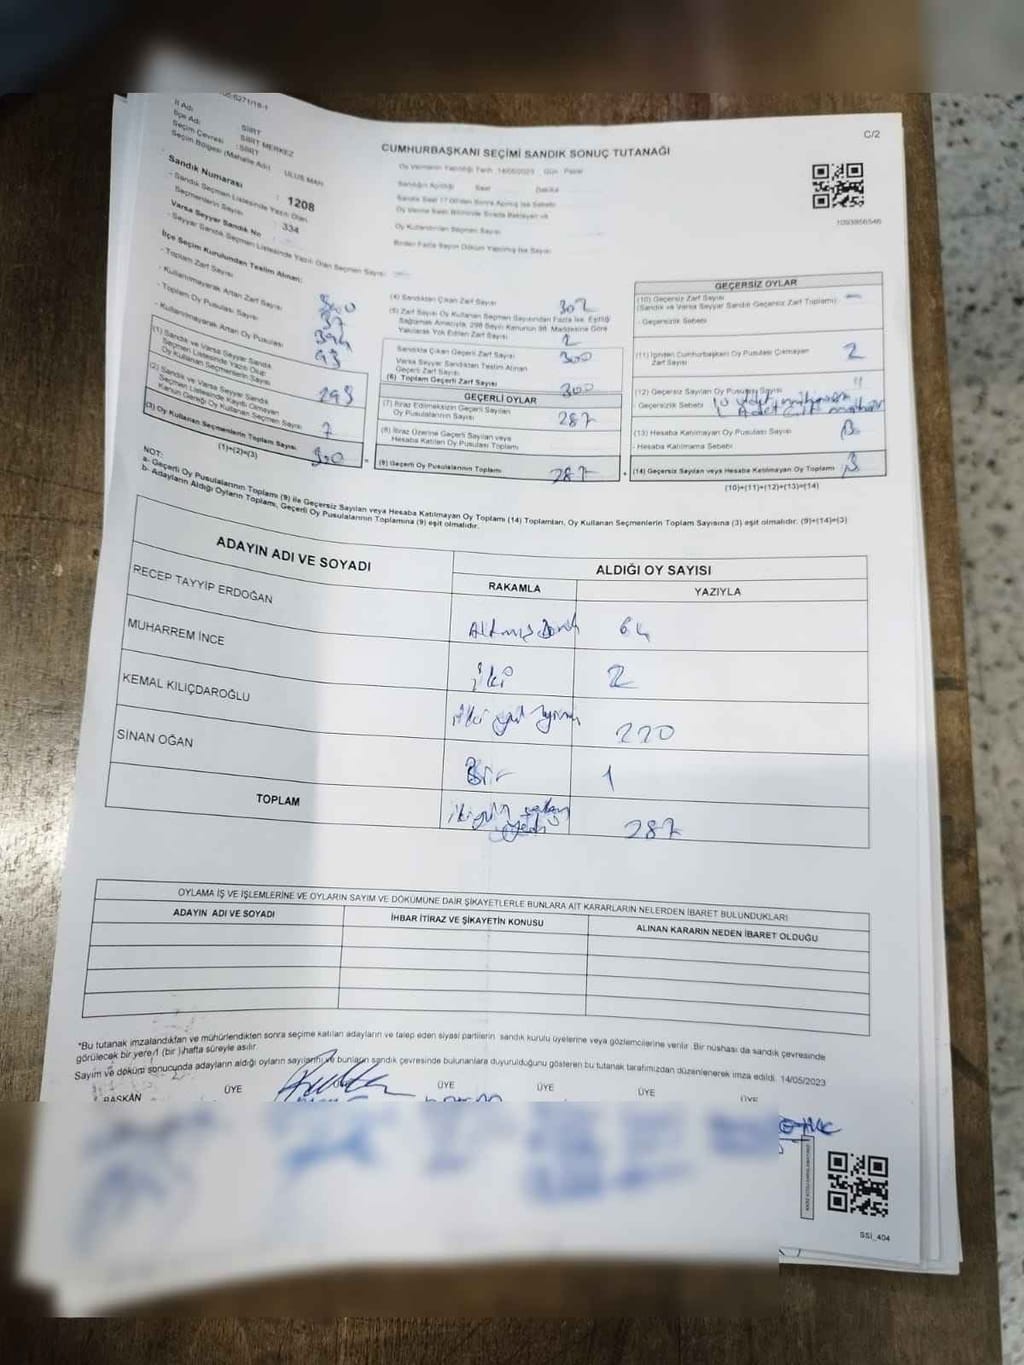 C/2
İl Adı : SİİRT
İlçe Adı : SİİRT MERKEZ
Seçim Çevresi : SİİRT
Seçim Bölgesi (Mahalle Adı) ULUS MAH.
CUMHURBAŞKANI SEÇİMİ SANDIK SONUÇ TUTANAĞI
Oy Vermenin Yapıldığı Tarih 14/05/2023 Gün Pazar
Sandığın Açıldığı Saat Dakika
Sandık Numarası : 1208
- Sandık Seçmen Listesinde Yazılı Olan
Seçmenlerin Sayısı : 334
Varsa Seyyar Sandık No
- Seyyar Sandık Seçmen Listesinde Yazılı Olan Seçmen Sayısı
Oy Kullandırılan Seçmen Sayısı
Birden Fazla Sayım Döküm Yapılmış İse Sayısı
1093956546
İlçe Seçim Kurulundan Teslim Alınan:
- Toplam Zarf Sayısı
- Kullanılmayarak Artan Zarf Sayısı
- Toplam Oy Pusulası Sayısı
- Kullanılmayarak Artan Oy Pusulası 
(1) Sandık ve Varsa Seyyar Sandık
Seçmen Listesinde Yazılı Olup
Oy Kullanan Seçmenlerin Sayısı 293
(2) Sandık ve Varsa Seyyar Sandık
Seçmen Listesinde Kayıtlı Olmayan
Kanun Gereği Oy Kullanan Seçmen Sayısı 7
(3) Oy Kullanan Seçmenlerin Toplam Sayısı 300
(1)+(2)=(3)
(4) Sandıktan Çıkan Zarf Sayısı 302
(5) Zarf Sayısı Oy Kullanan Seçmen Sayısından Fazla ise, Eşitliği
Sağlamak Amacıyla, 298 Sayılı Kanunun 98. Maddesine Göre
Yakılarak Yok Edilen Zarf Sayısı 2
Sandıkta Çıkan Geçerli Zarf Sayısı 300
Varsa Seyyar Sandıktan Teslim Alınan
Geçerli Zarf Sayısı
(6) Toplam Geçerli Zarf Sayısı 300
GEÇERLİ OYLAR
(7) İtiraz Edilmeksizin Geçerli Sayılan
Oy Pusulalarının Sayısı 287
(8) İtiraz Üzerine Geçerli Sayılan veya
Hesaba Katılan Oy Pusulası Toplamı
(9) Geçerli Oy Pusulalarının Toplamı 287
GEÇERSİZ OYLAR
(10) Geçersiz Zarf Sayısı
(Sandık ve Varsa Seyyar Sandık Geçersiz Zarf Toplamı) -
- Geçersizlik Sebebi
(11) İçinden Cumhurbaşkanı Oy Pusulası Çıkmayan
Zarf Sayısı 2
(12) Geçersiz Sayılan Oy Pusulası Sayısı 11
- Geçersizlik Sebebi
(13) Hesaba Katılmayan Oy Pusulası Sayısı
- Hesaba Katılmama Sebebi
(14) Geçersiz Sayılan veya Hesaba Katılmayan Oy Toplamı
(10)+(11)+(12)+(13)=(14)
NOT:
a- Geçerli Oy Pusulalarının Toplamı (9) ile Geçersiz Sayılan veya Hesaba Katılmayan Oy Toplamı (14) Toplamları, Oy Kullanan Seçmenlerin Toplam Sayısına (3) eşit olmalıdır. (9)+(14)=(3)
b- Adayların Aldığı Oyların Toplamı, Geçerli Oy Pusulalarının Toplamına (9) eşit olmalıdır.
ADAYIN ADI VE SOYADI
ALDIĞI OY SAYISI
RAKAMLA YAZIYLA
RECEP TAYYİP ERDOĞAN Altmış Dört 64
MUHARREM İNCE iki 2
KEMAL KILIÇDAROĞLU iki yüz yirmi 220
SİNAN OĞAN Bir 1
TOPLAM iki yüz seksen yedi 287
OYLAMA İŞ VE İŞLEMLERİNE VE OYLARIN SAYIM VE DÖKÜMÜNE DAİR ŞİKAYETLERLE BUNLARA AİT KARARLARIN NELERDEN İBARET BULUNDUKLARI
ADAYIN ADI VE SOYADI İHBAR İTİRAZ VE ŞİKAYETİN KONUSU ALINAN KARARIN NEDEN İBARET OLDUĞU
*Bu tutanak imzalandıktan ve mühürlendikten sonra seçime katılan adayların ve talep eden siyasi partilerin sandık kurulu üyelerine veya gözlemcilerine verilir. Bir nüshası da sandık çevresinde
görülecek bir yere/1 (bir) hafta süreyle asılır.
Sayım ve dökümü sonucunda adayların aldığı oyların sayılarını ve bunların sandık çevresinde bulunanlara duyurulduğunu gösteren bu tutanak tarafımızdan düzenlenerek imza edildi. 14/05/2023
BAŞKAN ÜYE ÜYE ÜYE ÜYE ÜYE
SSİ_404